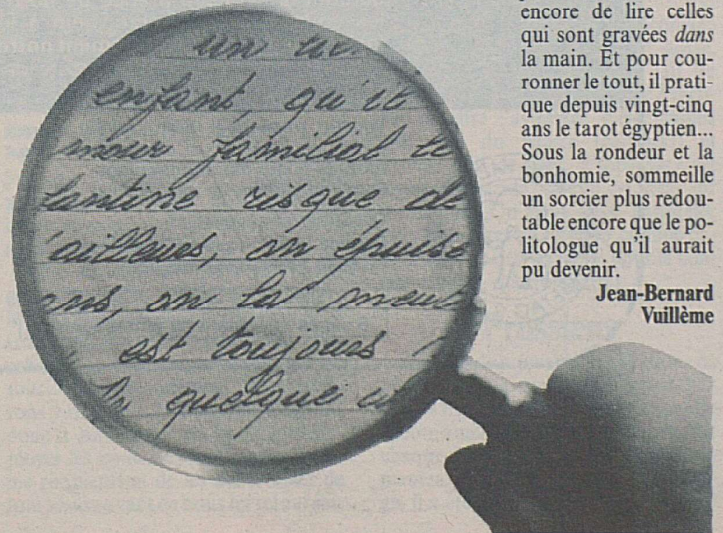 un
enfant, qu'il
amour familial
lantine risque de
'ailleurs, on épuise
ans, on la meur
est toujours
quelque
encore de lire celles
qui sont gravées dans
la main. Et pour cou-
ronner le tout, il prati-
que depuis vingt-cinq
ans le tarot égyptien...
Sous la rondeur et la
bonhomie, sommeille
un sorcier plus redou-
table encore que le po-
litologue qu'il aurait
pu devenir.
Jean-Bernard
Vuillème